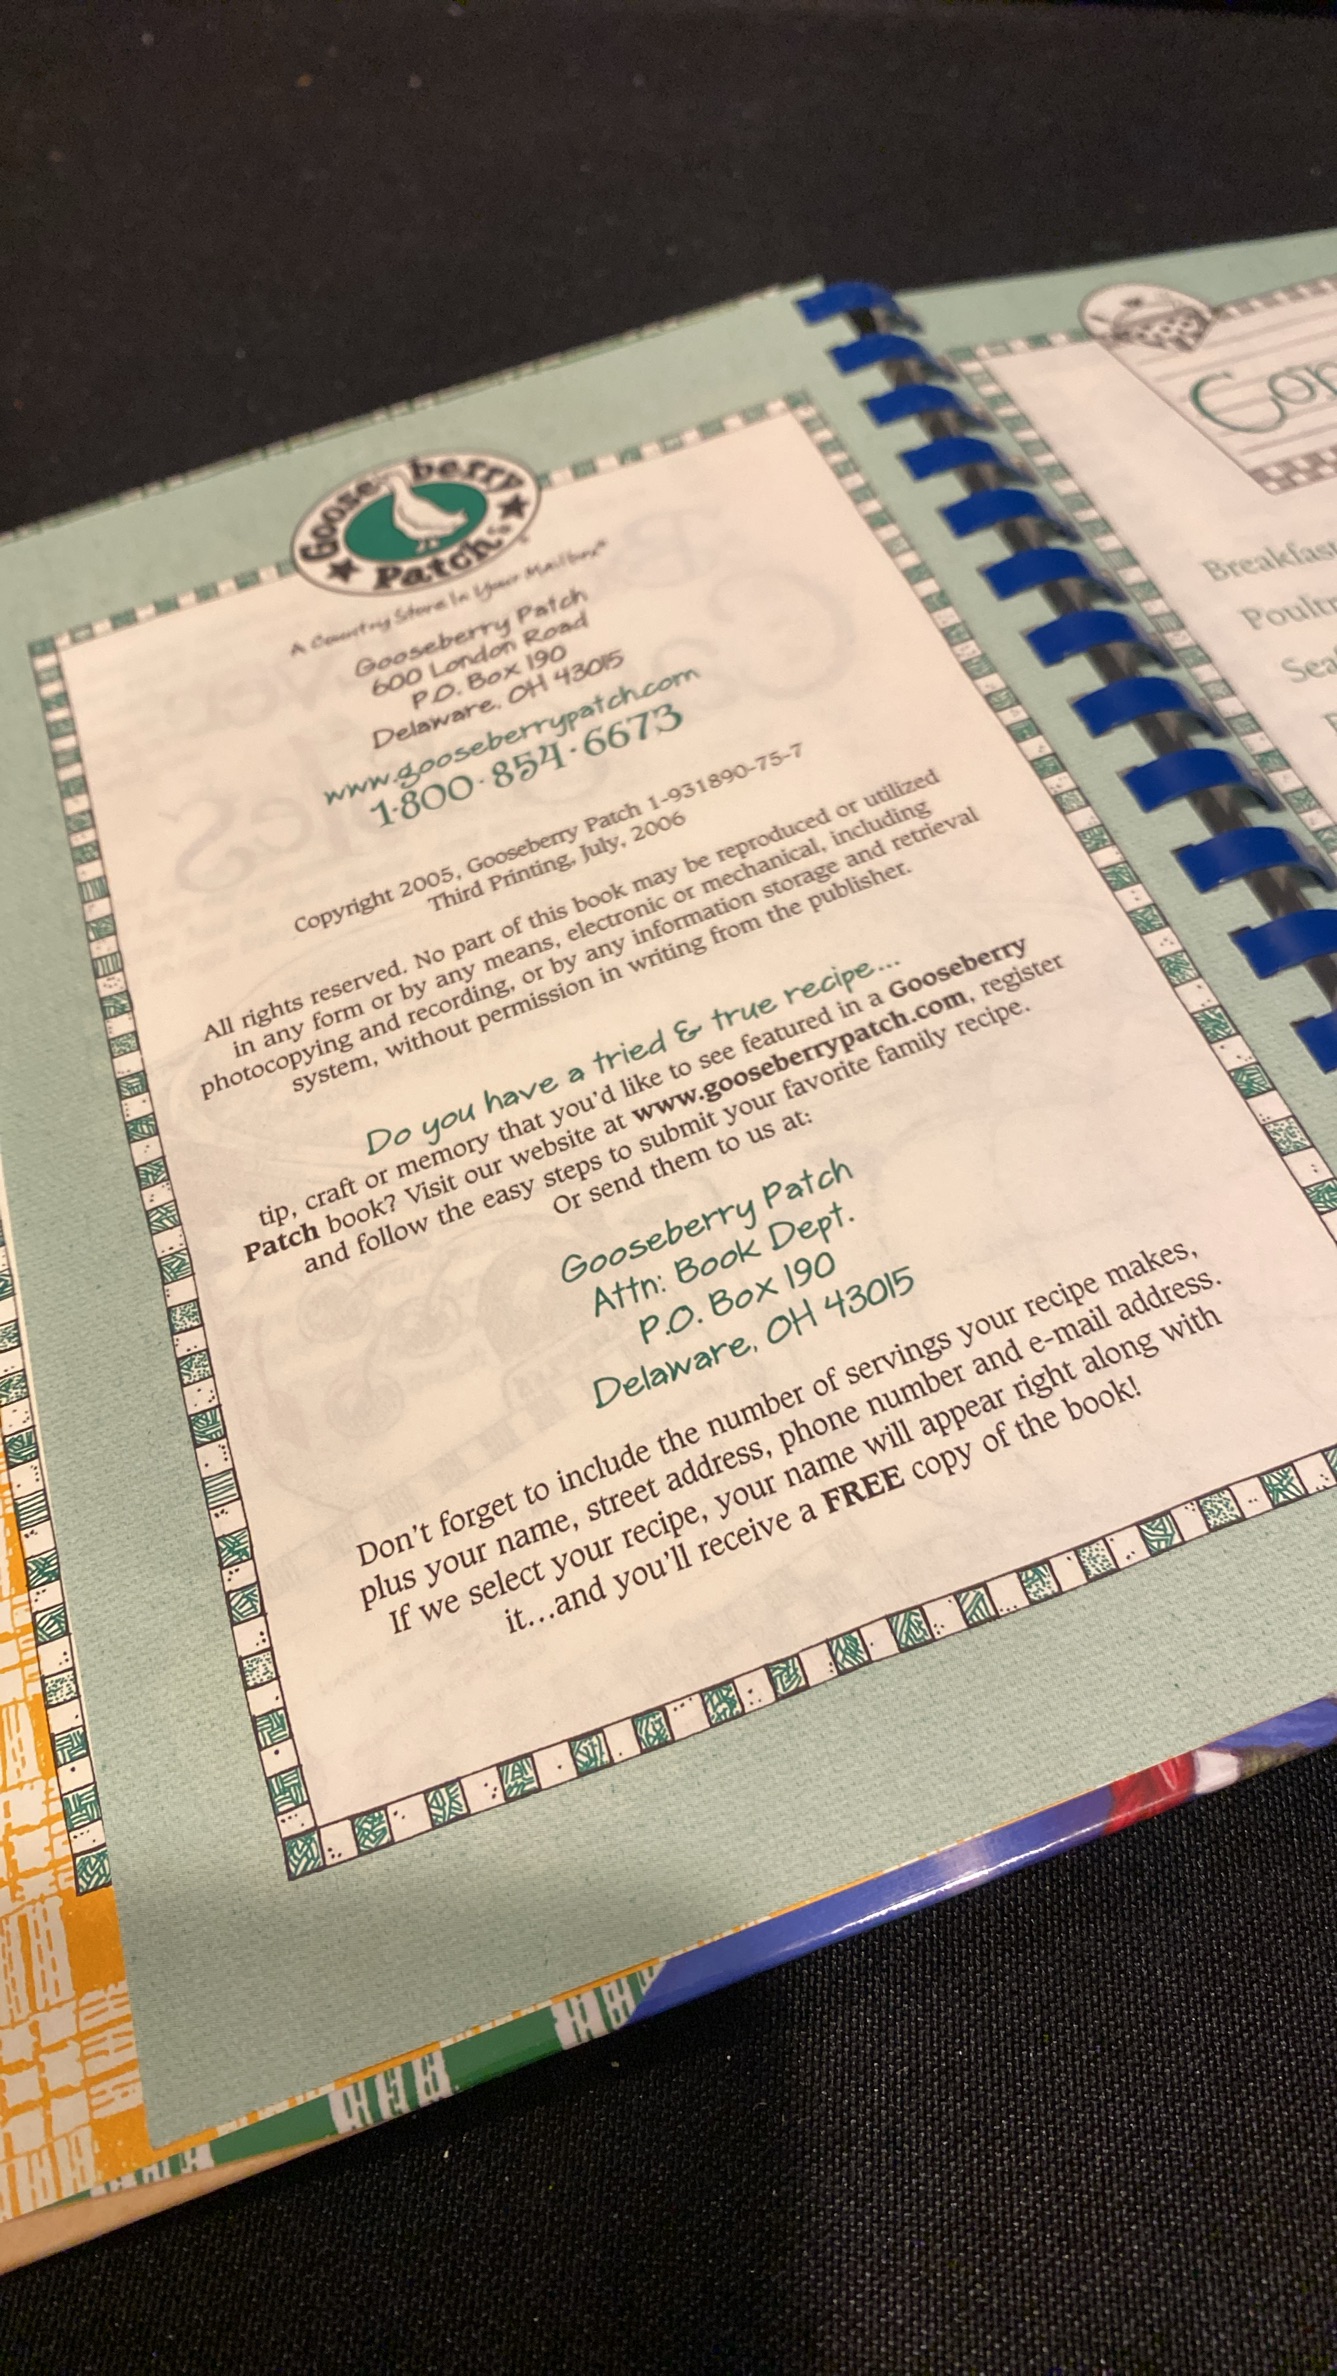 Gooseberry
Patch
A Country Store In Your Mailbox®
Gooseberry Patch
600 London Road
P.O. Box 190
Delaware, OH 43015
www.gooseberrypatch.com
1·800·854·6673
Copyright 2005, Gooseberry Patch 1-931890-75-7
Third Printing, July, 2006
All rights reserved. No part of this book may be reproduced or utilized
in any form or by any means, electronic or mechanical, including
photocopying and recording, or by any information storage and retrieval
system, without permission in writing from the publisher.
Do you have a tried & true recipe...
tip, craft or memory that you'd like to see featured in a Gooseberry
Patch book? Visit our website at www.gooseberrypatch.com, register
and follow the easy steps to submit your favorite family recipe.
Or send them to us at:
Gooseberry Patch
Attn: Book Dept.
P.O. Box 190
Delaware, OH 43015
Don't forget to include the number of servings your recipe makes,
plus your name, street address, phone number and e-mail address.
If we select your recipe, your name will appear right along with
it...and you'll receive a FREE copy of the book!
Breakfast
Poultry